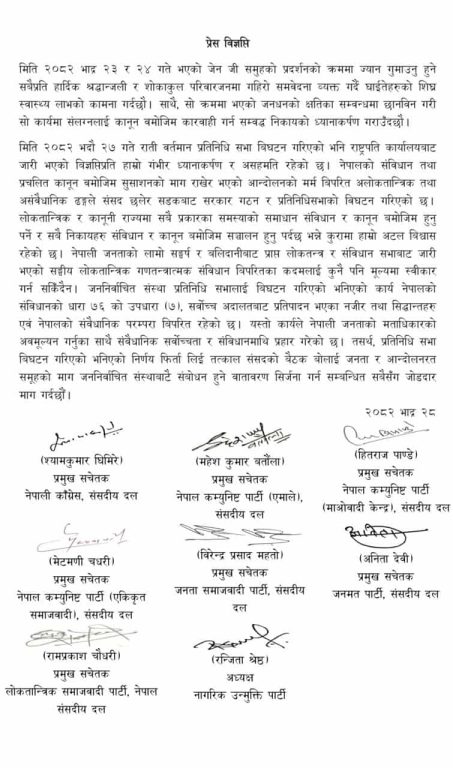 प्रेस विज्ञप्ति
मिति २०८२ भाद्र २३ र २४ गते भएको जेन जी समुहको प्रदर्शनको क्रममा ज्यान गुमाउनु हुने
सबैप्रति हार्दिक श्रद्धान्जली र शोकाकुल परिवारजनमा गहिरो समवेदना व्यक्त गर्दै घाईतेहरुको शिघ्र
स्वास्थ्य लाभको कामना गर्दछौं। साथै, सो क्रममा भएको जनधनको क्षतिका सम्वन्धमा छानविन गरी
सो कार्यमा संलग्नलाई कानून वमोजिम कारवाही गर्न सम्वद्ध निकायको ध्यानाकर्षण गराउँदछौं।
मिति २०८२ भदौ २७ गते राती वर्तमान प्रतिनिधि सभा विघटन गरिएको भनि राष्ट्रपति कार्यालयबाट
जारी भएको विज्ञप्तिप्रति हाम्रो गंभीर ध्यानाकर्षण र असहमति रहेको छ । नेपालको संविधान तथा
प्रचलित कानून वमोजिम सुसाशनको माग राखेर भएको आन्दोलनको मर्म विपरित अलोकतान्त्रिक तथा
असंवैधानिक ढङ्गले संसद छलेर सडकबाट सरकार गठन र प्रतिनिधिसभाको विघटन गरिएको छ।
लोकतान्त्रिक र कानूनी राज्यमा सवै प्रकारका समस्याको समाधान संविधान र कानून वमोजिम हुनु
पर्ने र सवै निकायहरु संविधान र कानून वमोजिम सञ्चालन हुनु पर्दछ भन्ने कुरामा हाम्रो अटल विश्वास
रहेको छ । नेपाली जनताको लामो सङ्घर्ष र बलिदानीबाट प्राप्त लोकतन्त्र र संविधान सभाबाट जारी
भएको सङ्घीय लोकतान्त्रिक गणतन्त्रात्मक संविधान विपरितका कदमलाई कुनै पनि मूल्यमा स्वीकार
गर्न सकिँदैन। जननिर्वाचित संस्था प्रतिनिधि सभालाई विघटन गरिएको भनिएको कार्य नेपालको
संविधानको धारा ७६ को उपधारा (७), सर्वोच्च अदालतबाट प्रतिपादन भएका नजीर तथा सिद्धान्तहरु
एवं नेपालको संवैधानिक परम्परा विपरित रहेको छ। यस्तो कार्यले नेपाली जनताको मताधिकारको
अवमूल्यन गर्नुका साथै संवैधानिक सर्वोच्चता र संविधानमाथि प्रहार गरेको छ। तसर्थ, प्रतिनिधि सभा
विघटन गरिएको भनिएको निर्णय फिर्ता लिई तत्काल संसदको बैठक बोलाई जनता र आन्दोलनरत
समूहको माग जननिर्वाचित संस्थाबाटै संवोधन हुने वातावरण सिर्जना गर्न सम्बन्धित सवैसँग जोडदार
माग गर्दछौं।
२०८२ भाद्र २८
(श्यामकुमार घिमिरे)
प्रमुख सचेतक
नेपाली काँग्रेस, संसदीय दल
(महेश कुमार बर्तौला)
प्रमुख सचेतक
नेपाल कम्युनिष्ट पार्टी (एमाले),
संसदीय दल
(हितराज पाण्डे)
प्रमुख सचेतक
नेपाल कम्युनिष्ट पार्टी
(माओवादी केन्द्र), संसदीय दल
(मेटमणी चौधरी)
प्रमुख सचेतक
नेपाल कम्युनिष्ट पार्टी (एकिकृत
समाजवादी), संसदीय दल
(विरेन्द्र प्रसाद महतो)
प्रमुख सचेतक
जनता समाजवादी पार्टी, संसदीय
दल
(अनिता देवी)
प्रमुख सचेतक
जनमत पार्टी, संसदीय दल
(रामप्रकाश चौधरी)
प्रमुख सचेतक
लोकतान्त्रिक समाजवादी पार्टी, नेपाल
संसदीय दल
(रन्जिता श्रेष्ठ)
अध्यक्ष
नागरिक उन्मुक्ति पार्टी